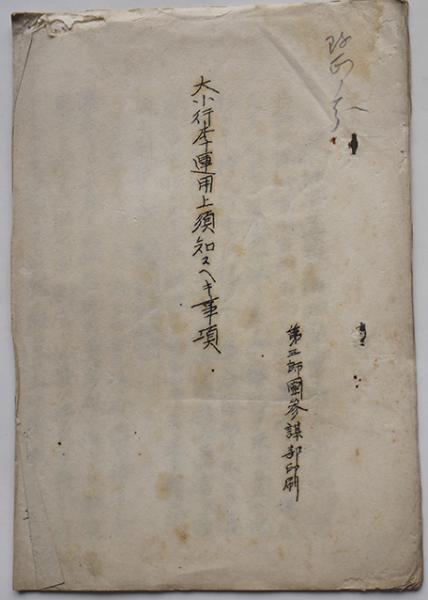 大小行李運用上須知スヘキ事項
第五師團参謀部印刷